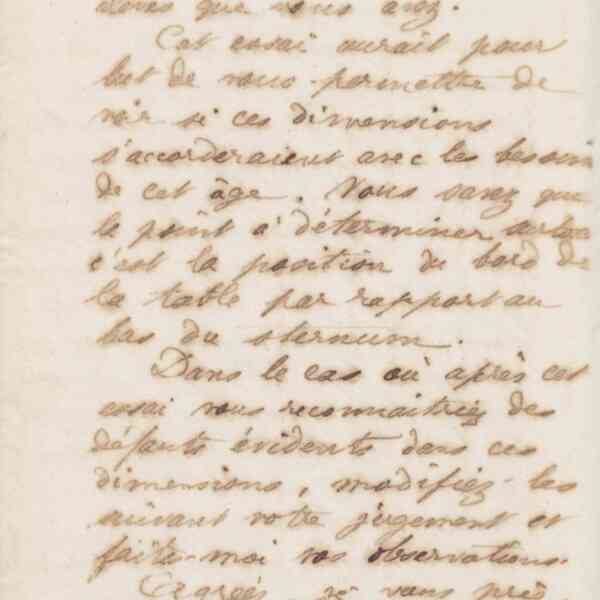 élèves que vous avez.
Cet essai aurait pour
but de vous permettre de
voir si ces dimensions
s'accorderaient avec les besoins
de cet âge. Vous savez que
le point à déterminer surtout
c'est la position du bord de
la table par rapport au
bas du sternum.
Dans le cas où après cet
essai vous reconnaitriez des
défauts évidents dans ces
dimensions, modifiez-les
suivant votre jugement et
faites-moi vos observations.
Agréez, je vous prie,